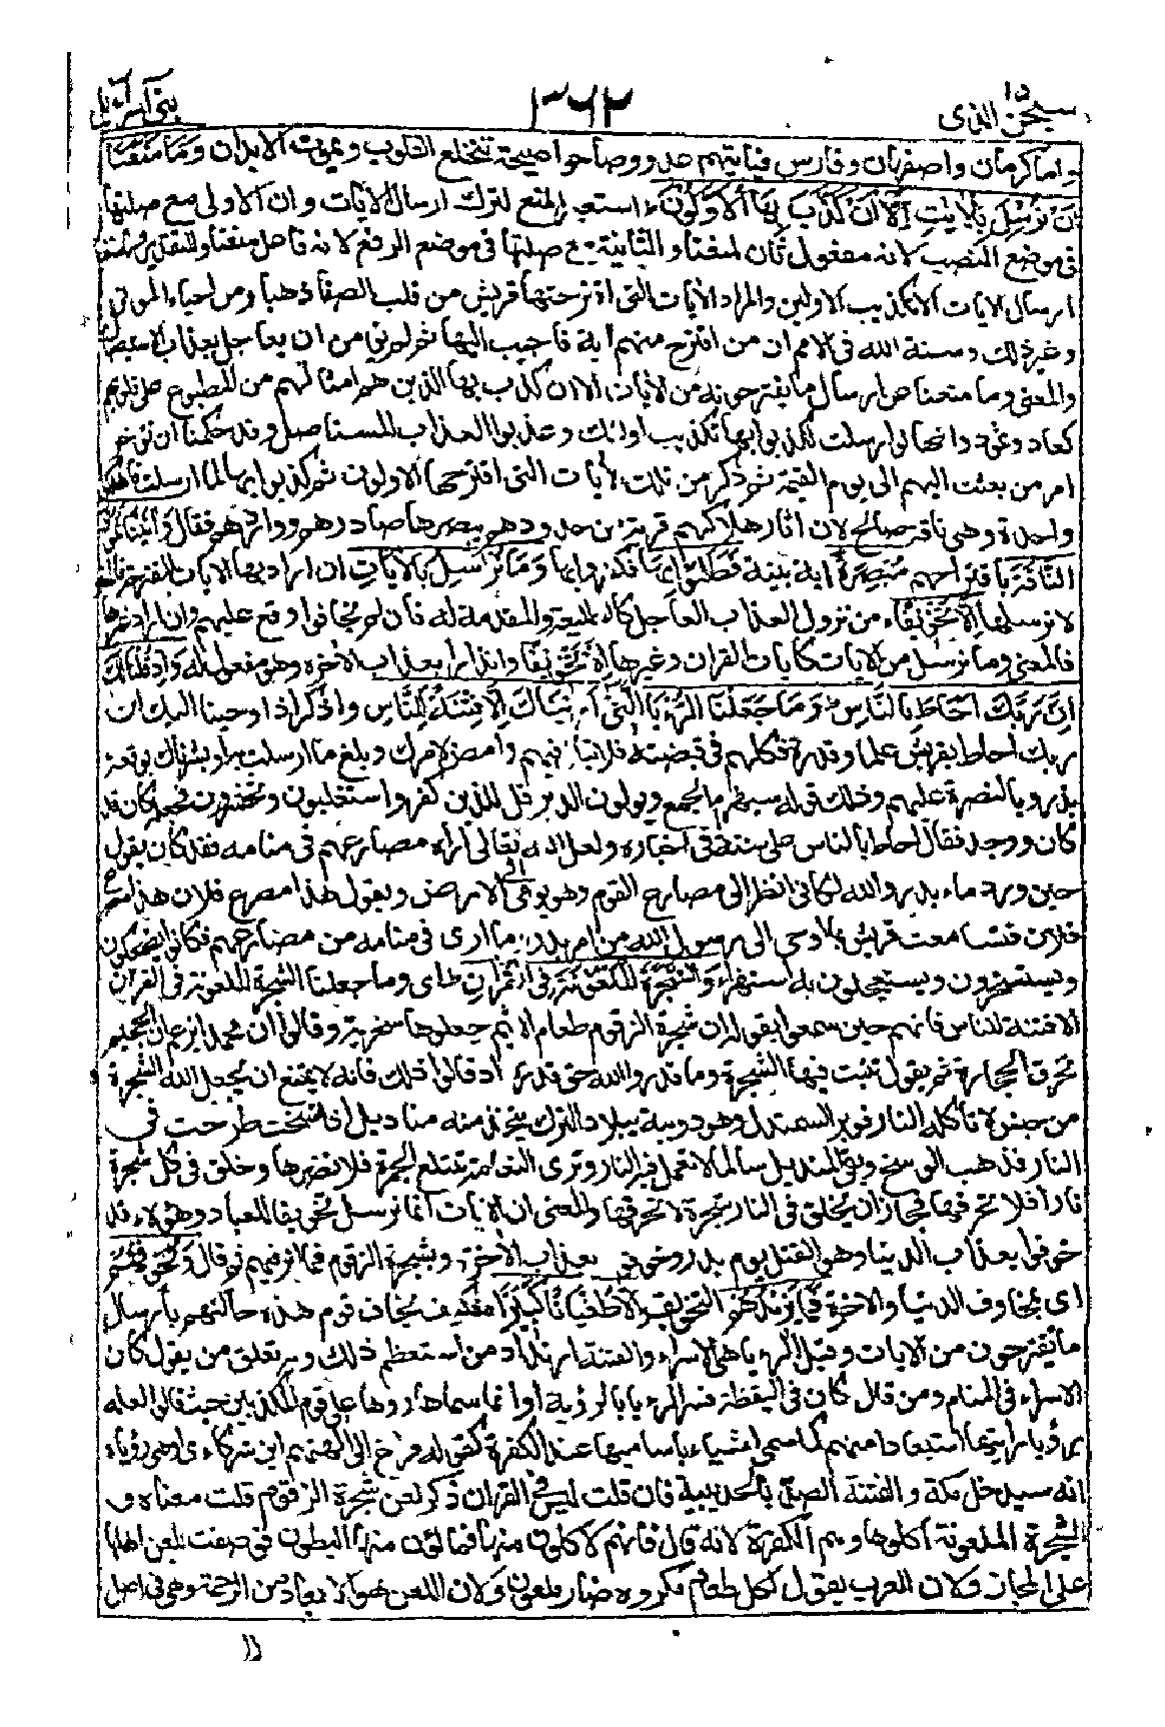 سبحن الذى ١٥
٣٦٢
بنى اسرآءيل
واما كرمان واصفهان وفارس فياتيهم عدو وصاحوا صيحة تنخلع القلوب وتموت الابدان وَمَا مَنَعَنَا
اَنْ نُرْسِلَ بِالْاٰيٰتِ اِلَّا اَنْ كَذَّبَ بِهَا الْاَوَّلُوْنَ استعير المنع لترك ارسال الايات وان الاولى مع صلتها
فى موضع النصب لانه مفعول ثان لمنعنا والثانية مع صلتها فى موضع الرفع لانه فاعل منعنا والتقدير وما منعنا
ارسال الايات الا تكذيب الاولين والمراد الايات التى اقترحتها قريش من قلب الصفا ذهبا ومن احياء الموتى
وغير ذلك وسنة الله فى الامم ان من اقترح منهم اية فاجيب اليها ثم لم يؤمن ان يعاجل بعذاب الاستيصال
والمعنى وما منعنا عن ارسال ما يقترحونه من الايات الا ان كذب بها الذين هم امثالهم من المطبوع على قلوبهم
كعاد وثمود وانها لو ارسلت لكذبوا بها تكذيب اولئك وعذبوا العذاب المستاصل وقد حكمنا ان نؤخر
امر من بعثت اليهم الى يوم القيمة ثم ذكر من تلك الايات التى اقترحها الاولون ثم كذبوا بها لما ارسلت فاهلكوا
واحدة وهى ناقة صالح لان اثار هلاكهم قريبة من حدودهم يبصرها صادرهم وواردهم فقال وَاٰتَيْنَا ثَمُوْدَ
النَّاقَةَ باقتراحهم مُبْصِرَةً اية بينة فَظَلَمُوْا بِهَا فكفروا بها وَمَا نُرْسِلُ بِالْاٰيٰتِ ان اراد بها الايات المقترحة فالمعنى
لا نرسلها اِلَّا تَخْوِيْفًا من نزول العذاب العاجل كالطليعة والمقدمة له فان لم يخافوا وقع عليهم وان اراد غيرها
فالمعنى وما نرسل من الايات كايات القران وغيرها اِلَّا تَخْوِيْفًا وانذارا بعذاب الاخرة وهو مفعول له وَاِذْ قُلْنَا لَكَ
اِنَّ رَبَّكَ اَحَاطَ بِالنَّاسِ وَمَا جَعَلْنَا الرُّءْيَا الَّتِىْ اَرَيْنٰكَ اِلَّا فِتْنَةً لِّلنَّاسِ واذكر اذ اوحينا اليك ان
ربك احاط بقريش علما وقدرة فكلهم فى قبضته فلا تبال بهم وامض لامرك وبلغ ما ارسلت به او بشرناك بوقعة
بدر وبالنصرة عليهم وذلك قوله سيهزم الجمع ويولون الدبر قل للذين كفروا ستغلبون وتحشرون فجعله كان قد
كان ووجد فقال احاط بالناس على سنته فى اخباره ولعل الله تعالى اراه مصارعهم فى منامه فقد كان يقول
حين ورد ماء بدر والله لكانى انظر الى مصارع القوم وهو يومى الى الارض ويقول هذا مصرع فلان هذا مصرع
فلان فتسامعت قريش بما اوحى الى رسول الله من امر بدر وما ارى فى منامه من مصارعهم فكانوا يضحكون
ويستسخرون ويستعجلون به استهزاء وَالشَّجَرَةَ الْمَلْعُوْنَةَ فِى الْقُرْاٰنِ اى وما جعلنا الشجرة الملعونة فى القران
الا فتنة للناس فانهم حين سمعوا بقوله ان شجرة الزقوم طعام الاثيم جعلوها سخرية وقالوا ان محمدا يزعم ان الجحيم
تحرق الحجارة ثم يقول تنبت فيها الشجرة وما قدروا الله حق قدره اذ قالوا ذلك فانه لا يمتنع ان يجعل الله الشجرة
من جنس لا تاكله النار فوبر السمندل وهو دويبة ببلاد الترك يتخذ منه مناديل اذا اتسخت طرحت فى
النار فذهب الوسخ وبقى المنديل سالما لا تعمل فيه النار وترى النعامة تبتلع الجمرة فلا تضرها وخلق فى كل شجرة
نارا فلا تحرقها فجاز ان يخلق فى النار شجرة لا تحرقها والمعنى ان الايات انما نرسل تخويفا للعباد وهؤلاء قد
خوفوا بعذاب الدنيا وهو القتل يوم بدر وخوفوا بعذاب الاخرة وبشجرة الزقوم فما اثر فيهم ثم قال وَنُخَوِّفُهُمْ
اى بمخاوف الدنيا والاخرة فَمَا يَزِيْدُهُمْ التخويف اِلَّا طُغْيَانًا كَبِيْرًا فكيف يخاف قوم هذه حالتهم بارسال
ما يقترحون من الايات وقيل الرءيا هى الاسراء والفتنة ارتداد من استعظم ذلك وبه تعلق من يقول كان
الاسراء فى المنام ومن قال كان فى اليقظة فسر الرءيا بالرؤية او انما سماها رءيا على قول المكذبين حيث قالوا لعله
رؤيا رايتها استبعادا منهم كما سمى اشياء باساميها عند الكفرة كقوله فراغ الى الهتهم اين شركاءى او هى رؤياه
انه سيدخل مكة والفتنة الصد بالحديبية فان قلت ليس فى القران ذكر لعن شجرة الزقوم قلت معناه و
الشجرة الملعونة اكلوها وهم الكفرة لانه قال فانهم لاكلون منها فمالئون منها البطون فوصفت بلعن اهلها
على المجاز ولان العرب يقول لكل طعام مكروه ضار ملعون ولان اللعن هو الابعاد من الرحمة وهى فى اصل